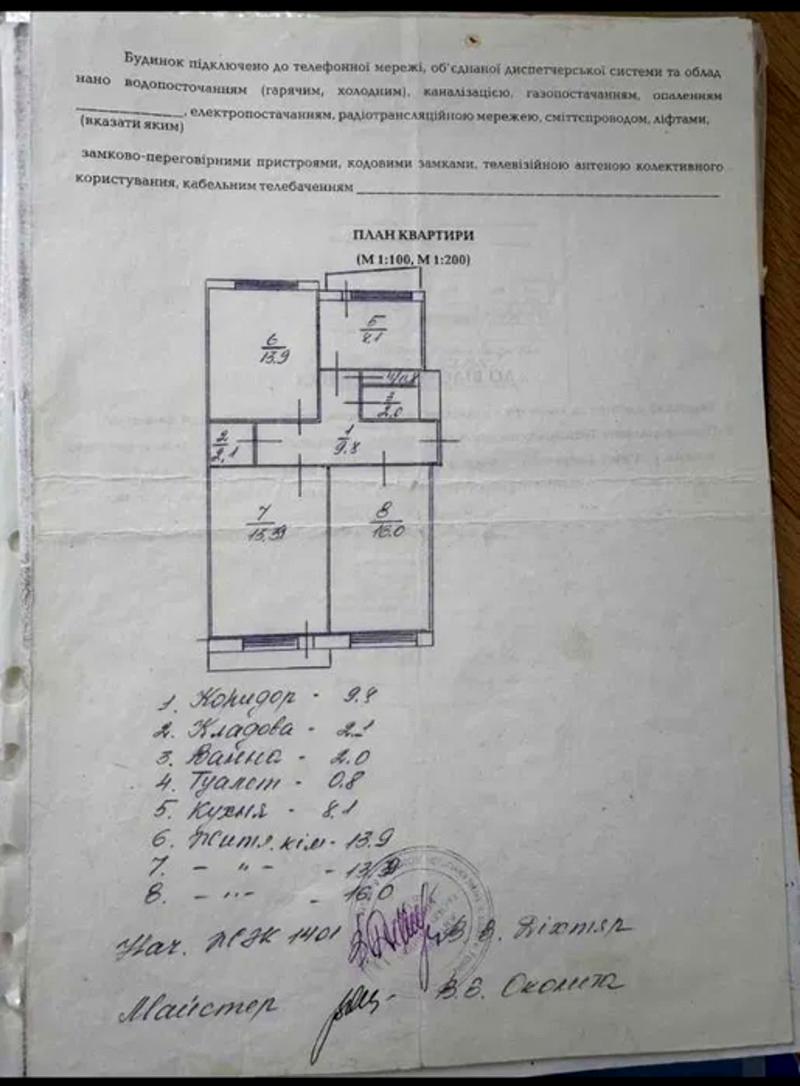 Будинок підключено до телефонної мережі, об'єднаної диспетчерської системи та облад
нано водопосточанням (гарячим, холодним), каналізацією, газопостачанням, опаленням
____________, електропостачанням, радіотрансляційною мережею, сміттєпроводом, ліфтами,
(вказати яким)
замково-переговірними пристроями, кодовими замками, телевізійною антеною колективного
користування, кабельним телебаченням ____________
ПЛАН КВАРТИРИ
(М 1:100, М 1:200)
5
8.1
6
13.9
4/0.8
3
2.0
2
2,1
1
9.8
7
8
16.0
1. Коридор - 9.8
2. Кладова - 2.1
3. Ванна - 2.0
4. Туалет - 0.8
5. Кухня - 8.1
6. Житл. кім - 13.9
7. – " –
8. – " – - 16.0
Нач. ЖЕК 1401 В. В. Діхтяр
Майстер